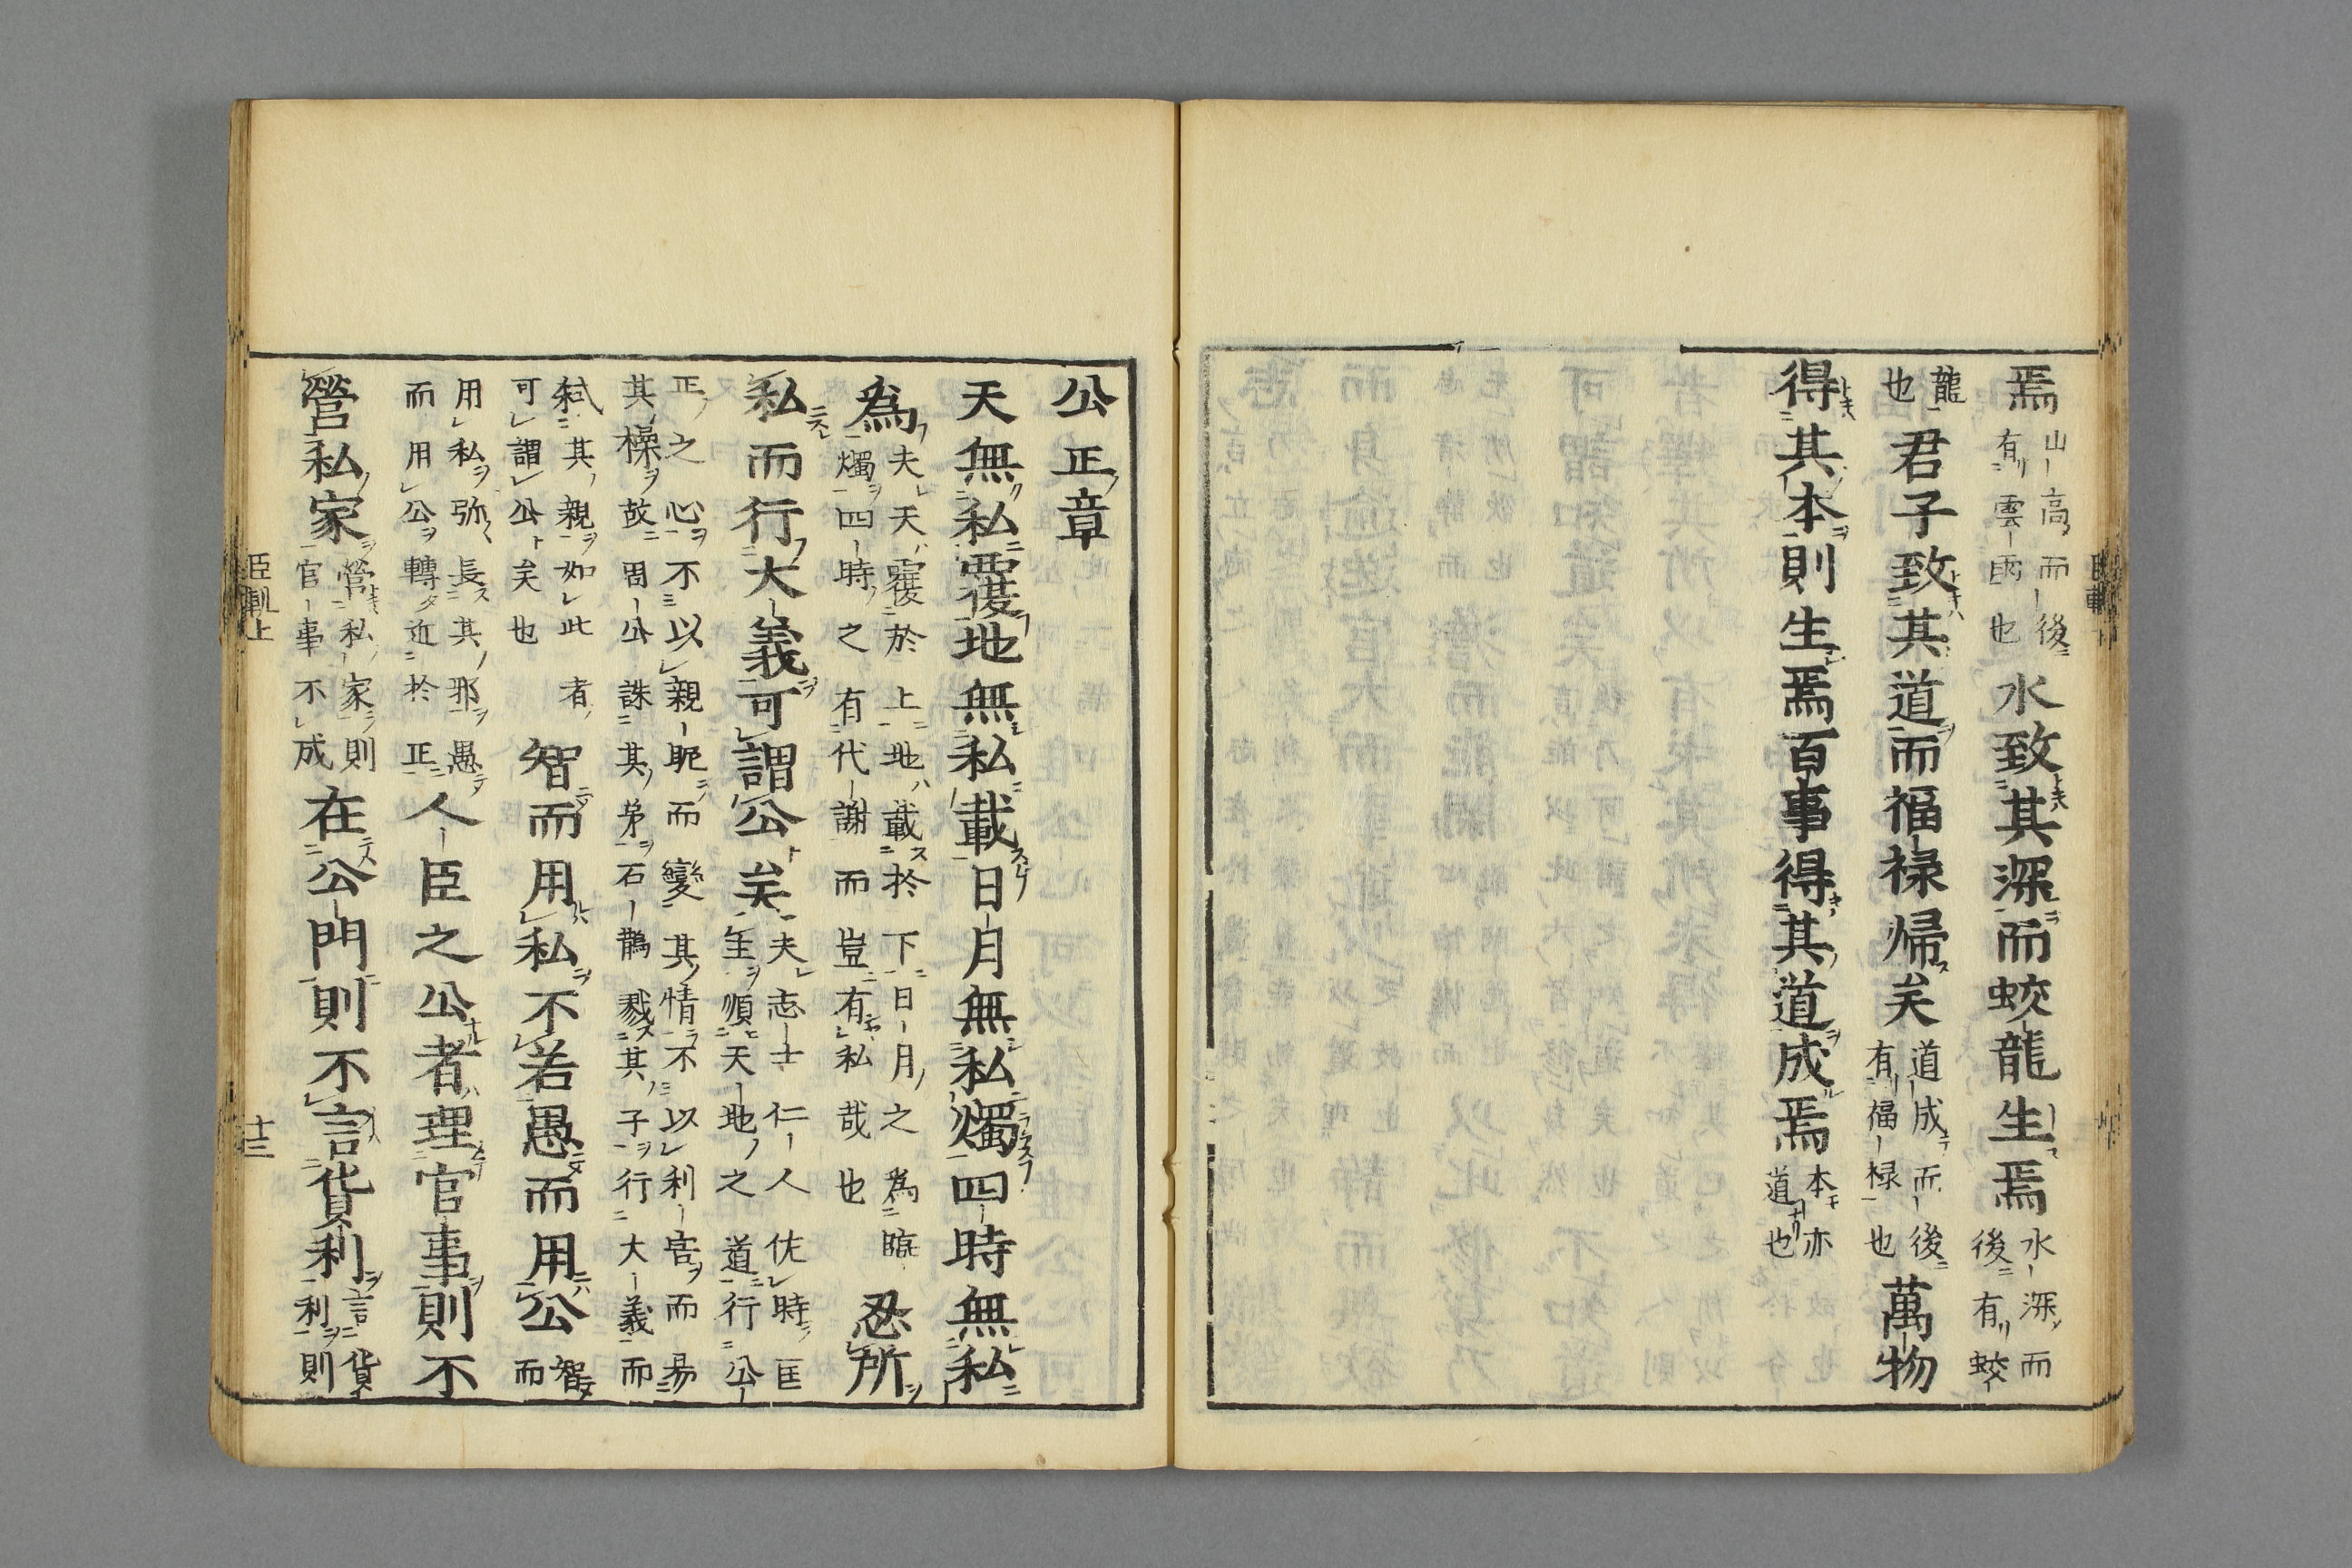 焉山高而後有雲雨也水致其深而蛟龍生焉水深而後有蛟
龍也君子致其道而福禄帰矣道成而後有福禄也萬物
得其本則生焉百事得其道成焉本亦道也
公正章
天無私覆地無私載日月無私燭四時無私忍所
為夫天覆於上地載於下日月之為臨燭四時之有代謝而豈有私哉也
私而行大義可謂公矣夫志士仁人佐時匡主順天地之道行公
正之心不以親昵而變其情不以利害而易其操故周公誅其弟石鵲戮其子行大義而
弑其親如此者可謂公矣也智而用私不若愚而用公智而
用私弥長其邪愚而用公轉近於正人臣之公者理官事則不
營私家營私家則官事不成在公門則不言貨利言貨利則
臣軌上
十三